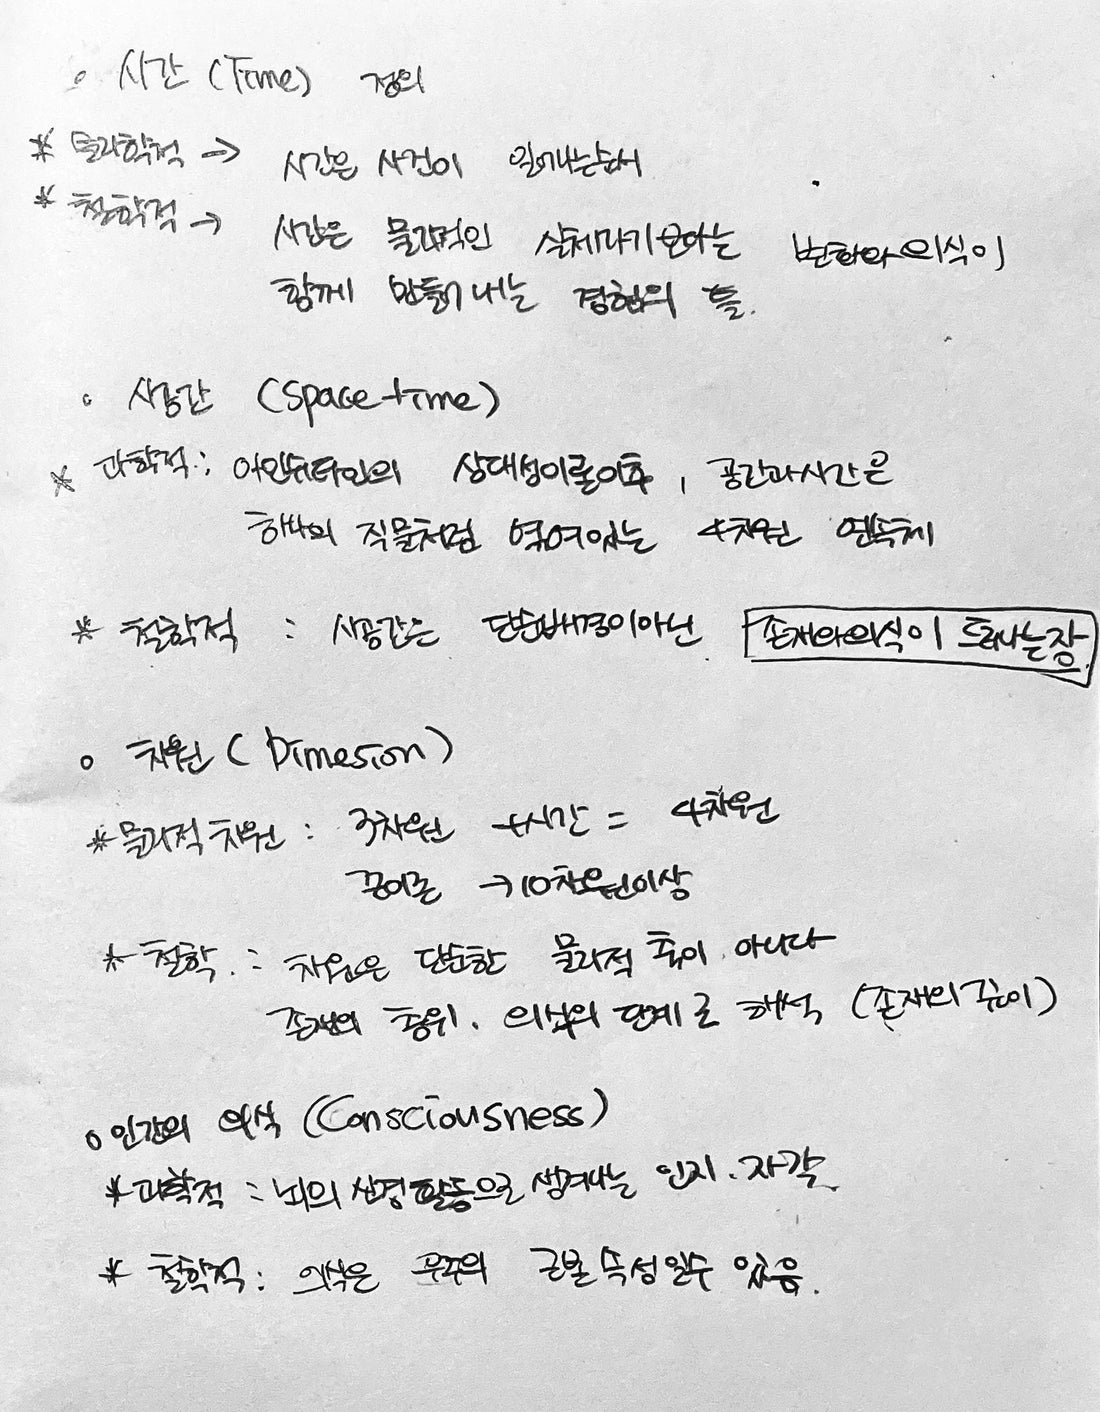 ◦ 시간 (Time) 정의
* 물리학적 → 시간은 사건이 일어나는 순서
* 철학적 → 시간은 물리적인 실체라기보다는 변화와 의식이
함께 만들어 내는 경험의 틀.
◦ 시공간 (Space-time)
* 과학적 : 아인슈타인의 상대성이론이후, 공간과 시간은
하나의 직물처럼 엮여있는 4차원 연속체
* 철학적 : 시공간은 단순배경이아닌 존재와 의식이 드러나는 장.
◦ 차원 (Dimesion)
* 물리적 차원 : 3차원 +시간 = 4차원
끈이론 → 10차원이상
* 철학. : 차원은 단순한 물리적 축이 아니다
존재의 층위. 의식의 단계로 해석 (존재의 깊이)
◦ 인간의 의식 (Consciousness)
* 과학적 : 뇌의 신경활동으로 생겨나는 인지. 자각.
* 철학적 : 의식은 우주의 근본 속성일수 있음.